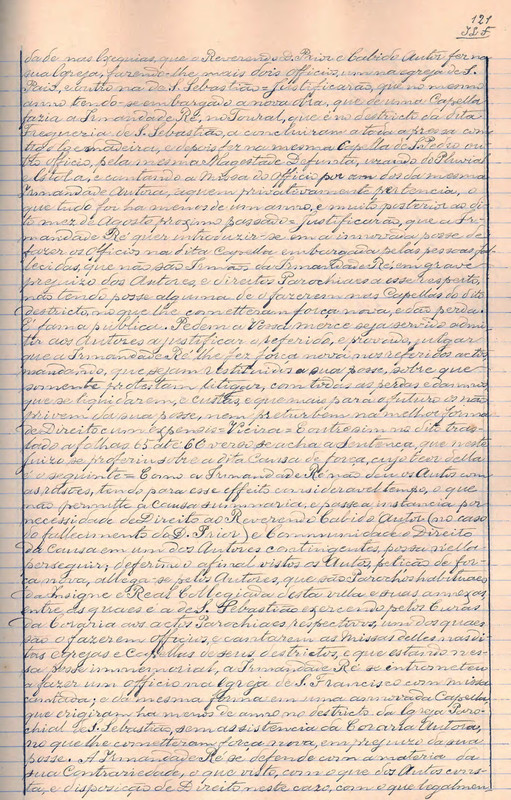 121
dade nas Exequias, que o Reverendo D. Prior e Cabido Autor fez na
sua Igreja, fazendo-lhe mais dois officios, um na egreja de S.
Paio, e outro na de S. Sebastião = Justificarão, que no mesmo
anno tendo-se embargado a nova obra, que de uma Capella
fazia a Irmandade Ré, no Toural, que é no districto da dita
freguezia de S. Sebastião, a concluiram a toda a pressa com
tudo de madeira, e depois fez na mesma Capella de S. Pedro ou-
tro officio, pela mesma Magestade Defunta, usando de Pluvial
e Estola, e cantando a Missa do Officio por um dos da mesma
Irmandade Autora, a quem privativamente pertencia, o
que tudo foi ha menos de um anno, e muito posterior ao di-
to mez de Agosto proximo passado = Justificarão, que a Ir-
mandade Ré quer introduzir-se em a innovada posse de
fazer os Officios na dita Capella embargada pelas pessoas fal-
lecidas, que não são Irmãos da Irmandade Ré, em grave
prejuizo dos Autores, e direitos Parochiaes a esse respeito,
não tendo posse alguma de o fazerem nas Capellas do dito
districto, no que lhe cometteram força nova, e dão perda.
É fama publica. Pedem a Vossa mercê seja servido admit-
tir aos Autores a justificar o referido, e provado, julgar
que a Irmandade Ré lhe fez força nova nos referidos actos,
mandando, que sejam restituidos a sua posse, sobre que
somente protestam litigar, com todas as perdas e damnos
que se liquidarem, e custas, e que mais para o futuro os não
privem da sua posse, nem perturbem na melhor forma
de Direito cum expensis = Vieira = Contresim no dito tras-
lado a folhas 65 até 60 verso se acha a Sentença, que neste
juizo se proferiu sobre a dita Causa de força, cujo teor della
é o seguinte = Como a Irmandade Ré não deu os Autos com
as rasões, tendo para esse effeito consideravel tempo, o que
não permitte a causa summaria, e posse a instancia por
necessidade de Direito ao Reverendo Cabido Autor (no caso
do fallecimento do D. Prior) e Communidade o Direito
da Causa em um dos Autores contingentes, possa nella
perseguir; deferindo a final vistos os Autos, petição de for-
ça nova, allega-se pelos Autores, que são Parochos habituaes
da Insigne e Real Collegiada desta villa e suas annexas,
entre as quaes é a de S. Sebastião exercendo pelos Curas
da Coraria aos actos Parochiaes respectivos, um dos quaes
são o fazerem officios, e cantarem as Missas delles nas di-
tas egrejas e Capellas de seus districtos, e que estando nes-
sa posse immemorial, a Irmandade Ré se entrometteu
a fazer um officio na Igreja de S. Francisco com missa
cantada; e da mesma forma em uma innovada Capella,
que erigiram ha menos de anno no districto da Igreja Paro-
chial de S. Sebastião, sem assistencia da Coraria Autora,
no que lhe cometteram força nova, em prejuizo da sua
posse. A Irmandade Ré se defende com a materia da
sua Contrariedade, o que visto, com o que dos Autos cons-
ta, e disposição de Direito neste caso, com o que legalmen-